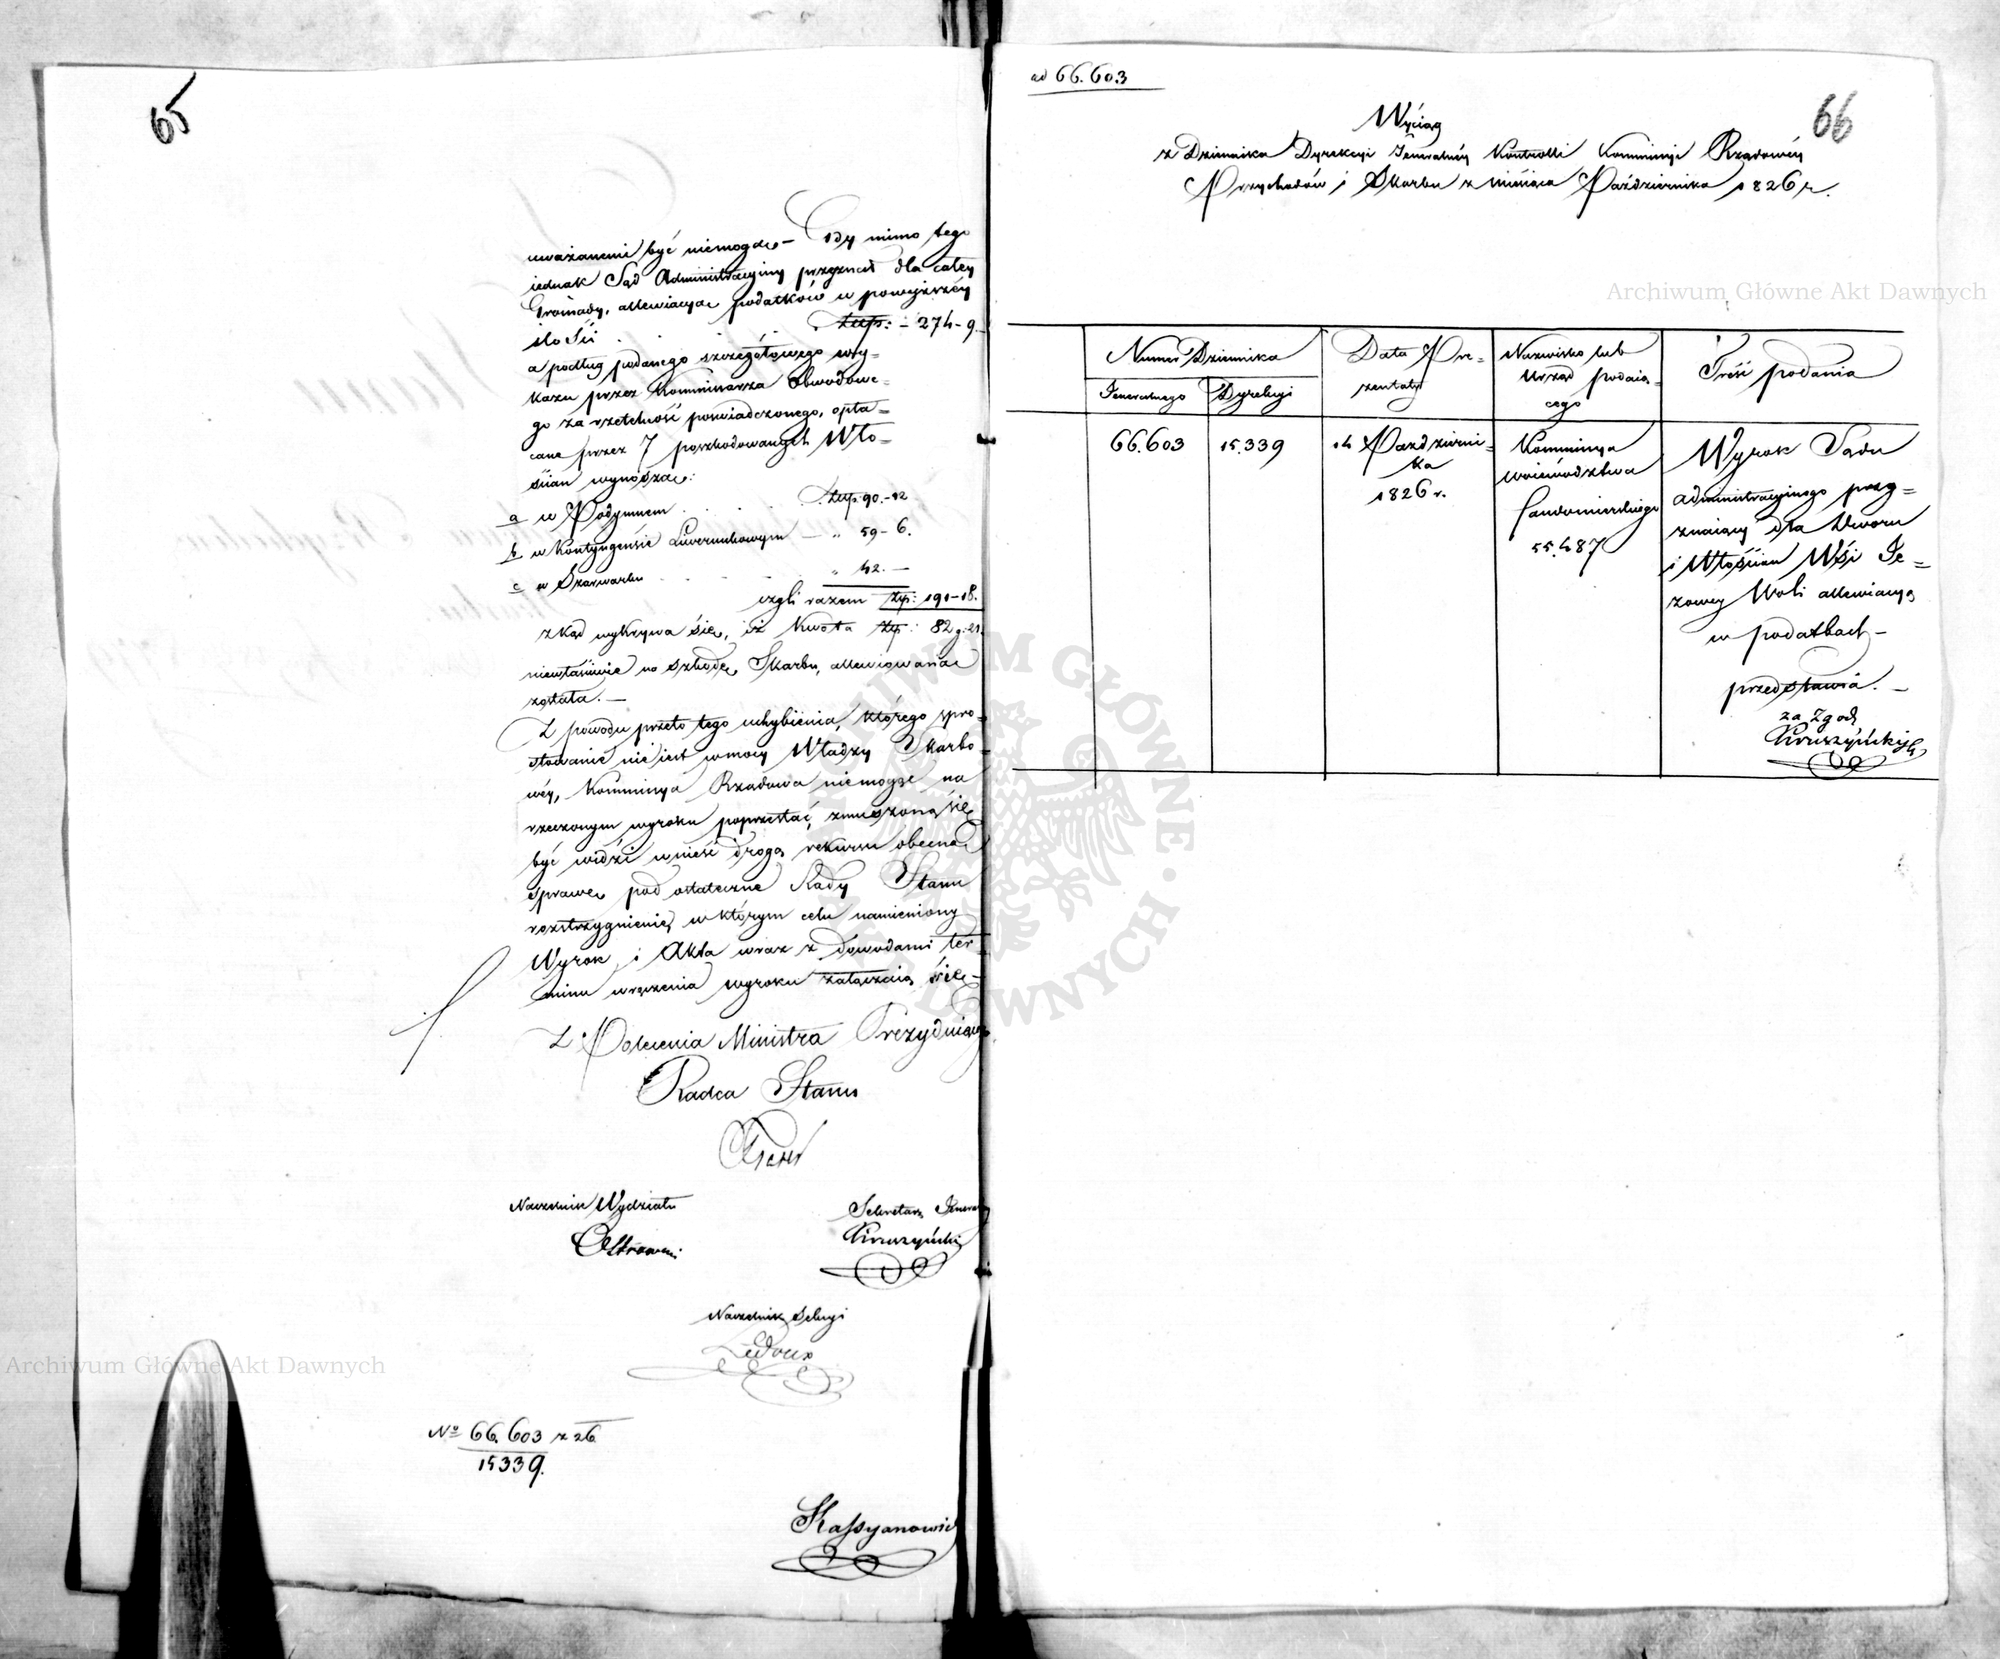 65
uważanemi być niemogą – Gdy mimo tego
iednak Sąd Administracyiny przyznał dla całey
Gromady, allewiacyą podatków w powyższéy
ilości . . . Złlp: – 274 – 9. –
a podług podanego szczegółowego wy=
kazu przez Kommissarza Obwodowe=
go za rzetelność poświadczonego, opła=
cane przez 7 poszkodowanych Wło=
ścian wynoszą:
a w Podymnem . . . Złlp. 90. – 12
b w Kontyngensie Liwerunkowym – „ 59 – 6.
c w Szarwarku . . . „ 42. –
czyli razem Złp: 191 – 18.
zkąd wykrywa się, iż Kwota Złp: 82 g: 21.
niewłaściwie na szkodę Skarbu, allewiowaną
została. –
Z powodu przeto tego uchybienia, którego spro=
stowanie nie iest w mocy Władzy Skarbo=
wéy, Kommissya Rządowa niemogąc na
rzeczonym wyroku poprzestać, zmuszoną się
być widzi wnieść drogą rekursu obecną
sprawę pod ostateczne Rady Stanu
rozstrzygnienie, w którym celu namieniony
Wyrok i Akta wraz z dowodami ter=
minu wręczenia wyroku załączaią się –
Z Polecenia Ministra Prezyduiącego
Radca Stanu
Naczelnik Wydziału
Sekretarz Jeneralny
Kruszyński
Naczelnik Sekcyi
Ledoux
No 66.603 z 26
15339.
Kassyanowicz
ad 66.603
66
Wyciąg
z Dziennika Dyrekcyi Jeneralnéy Kontrolli Kommissyi Rządowéy
Przychodów i Skarbu z miesiąca Października 1826 r.
Numer Dziennika
Jeneralnego Dyrekcyi
Data Pre=
zentaty
Nazwisko lub
Urząd podaią=
cego
Treść podania
66.603
15.339
14 Październi=
ka
1826 r.
Kommissya
Woiewództwa
Sandomierskiego
55.487
Wyrok Sądu
Administracyinego przy=
znaiący dla Dworu
i Włościan Wsi Je=
żowey Woli allewiacyą
w podatkach –
przedstawia. –
za Zgod.
Kruszyński
Archiwum Główne Akt Dawnych
Archiwum Główne Akt Dawnych
ARCHIWUM GŁÓWNE AKT DAWNYCH